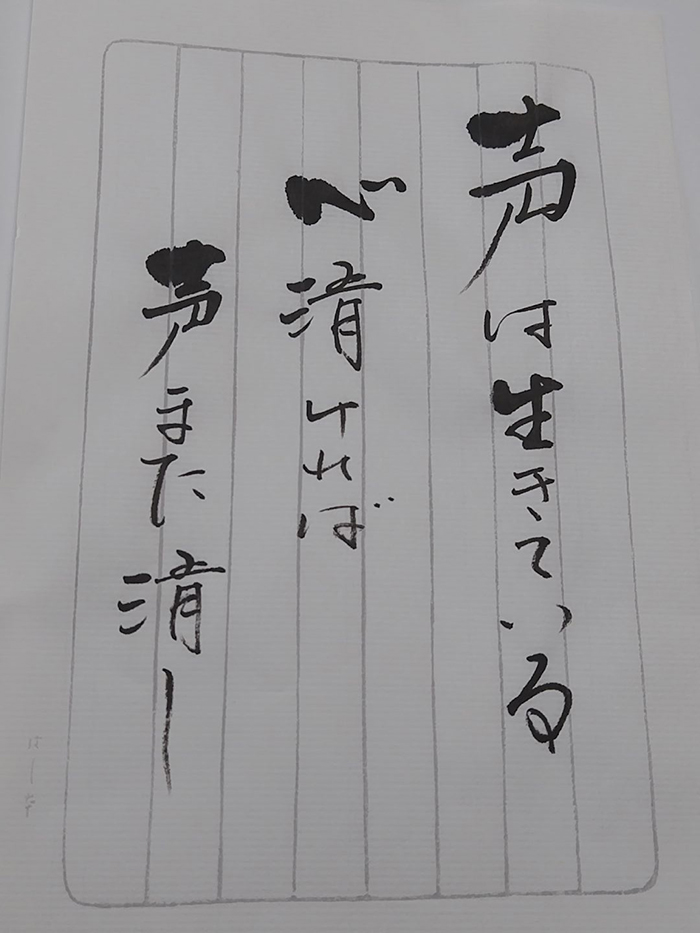 声は生きている
心清ければ
声また清し